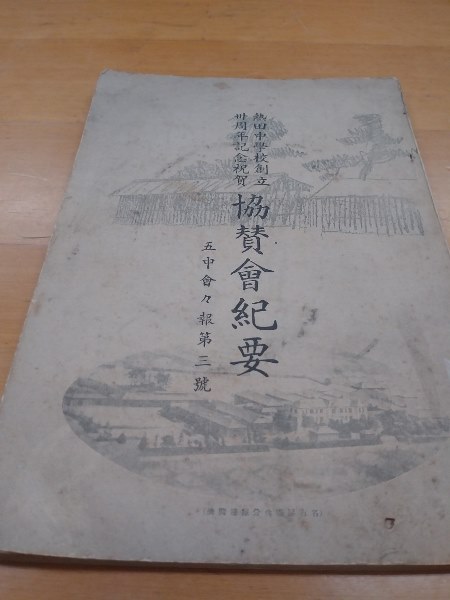 熱田中學校創立
卅周年記念祝賀
協賛會紀要
五中會々報第三號